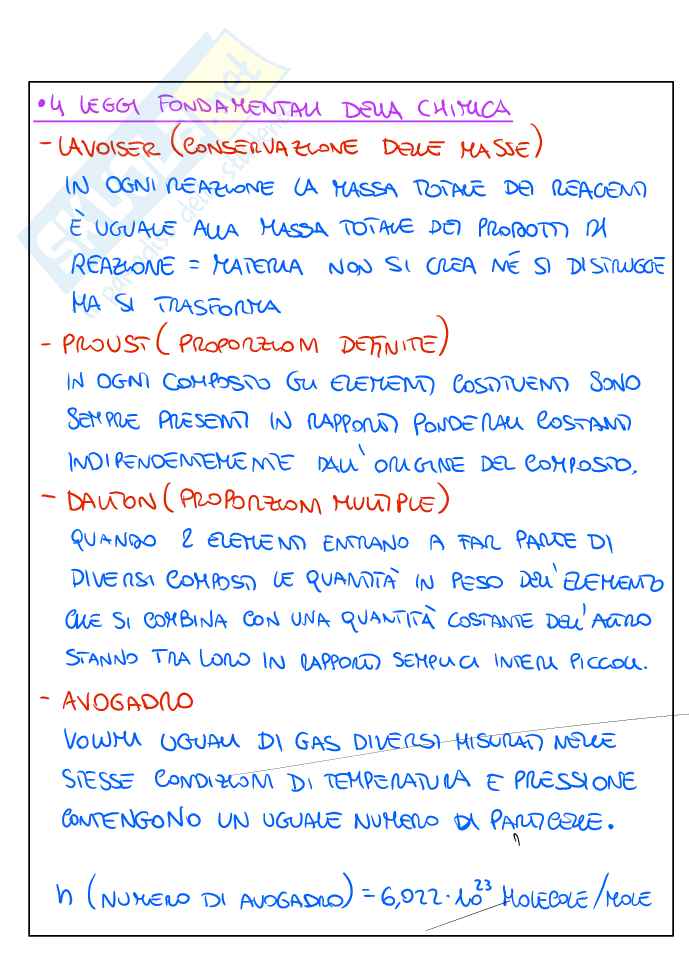 • 4 LEGGI FONDAMENTALI DELLA CHIMICA
- LAVOISER (CONSERVAZIONE DELLE MASSE)
IN OGNI REAZIONE LA MASSA TOTALE DEI REAGENTI
È UGUALE ALLA MASSA TOTALE DEI PRODOTTI DI
REAZIONE = MATERIA NON SI CREA NÉ SI DISTRUGGE
MA SI TRASFORMA
- PROUST (PROPORZIONI DEFINITE)
IN OGNI COMPOSTO GLI ELEMENTI COSTITUENTI SONO
SEMPRE PRESENTI IN RAPPORTI PONDERALI COSTANTI
INDIPENDENTEMENTE DALL'ORIGINE DEL COMPOSTO.
- DALTON (PROPORZIONI MULTIPLE)
QUANDO 2 ELEMENTI ENTRANO A FAR PARTE DI
DIVERSI COMPOSTI LE QUANTITÀ IN PESO DELL'ELEMENTO
CHE SI COMBINA CON UNA QUANTITÀ COSTANTE DELL'ALTRO
STANNO TRA LORO IN RAPPORTI SEMPLICI INTERI PICCOLI.
- AVOGADRO
VOLUMI UGUALI DI GAS DIVERSI MISURATI NELLE
STESSE CONDIZIONI DI TEMPERATURA E PRESSIONE
CONTENGONO UN UGUALE NUMERO DI PARTICELLE.
n (NUMERO DI AVOGADRO) = 6,022 · 10²³ MOLECOLE/MOLE